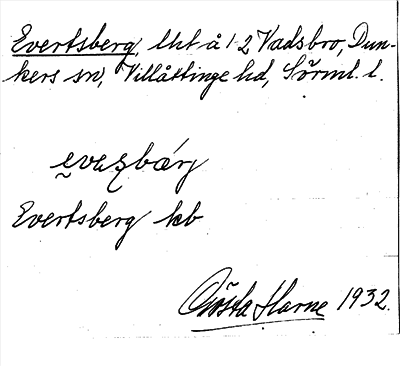 Evertsberg, lht å 1/2 Vadsbro, Dun-
kers sn, Villåttinge hd, Sörml. l.
Evertsberg kb
Gösta Harne 1932.